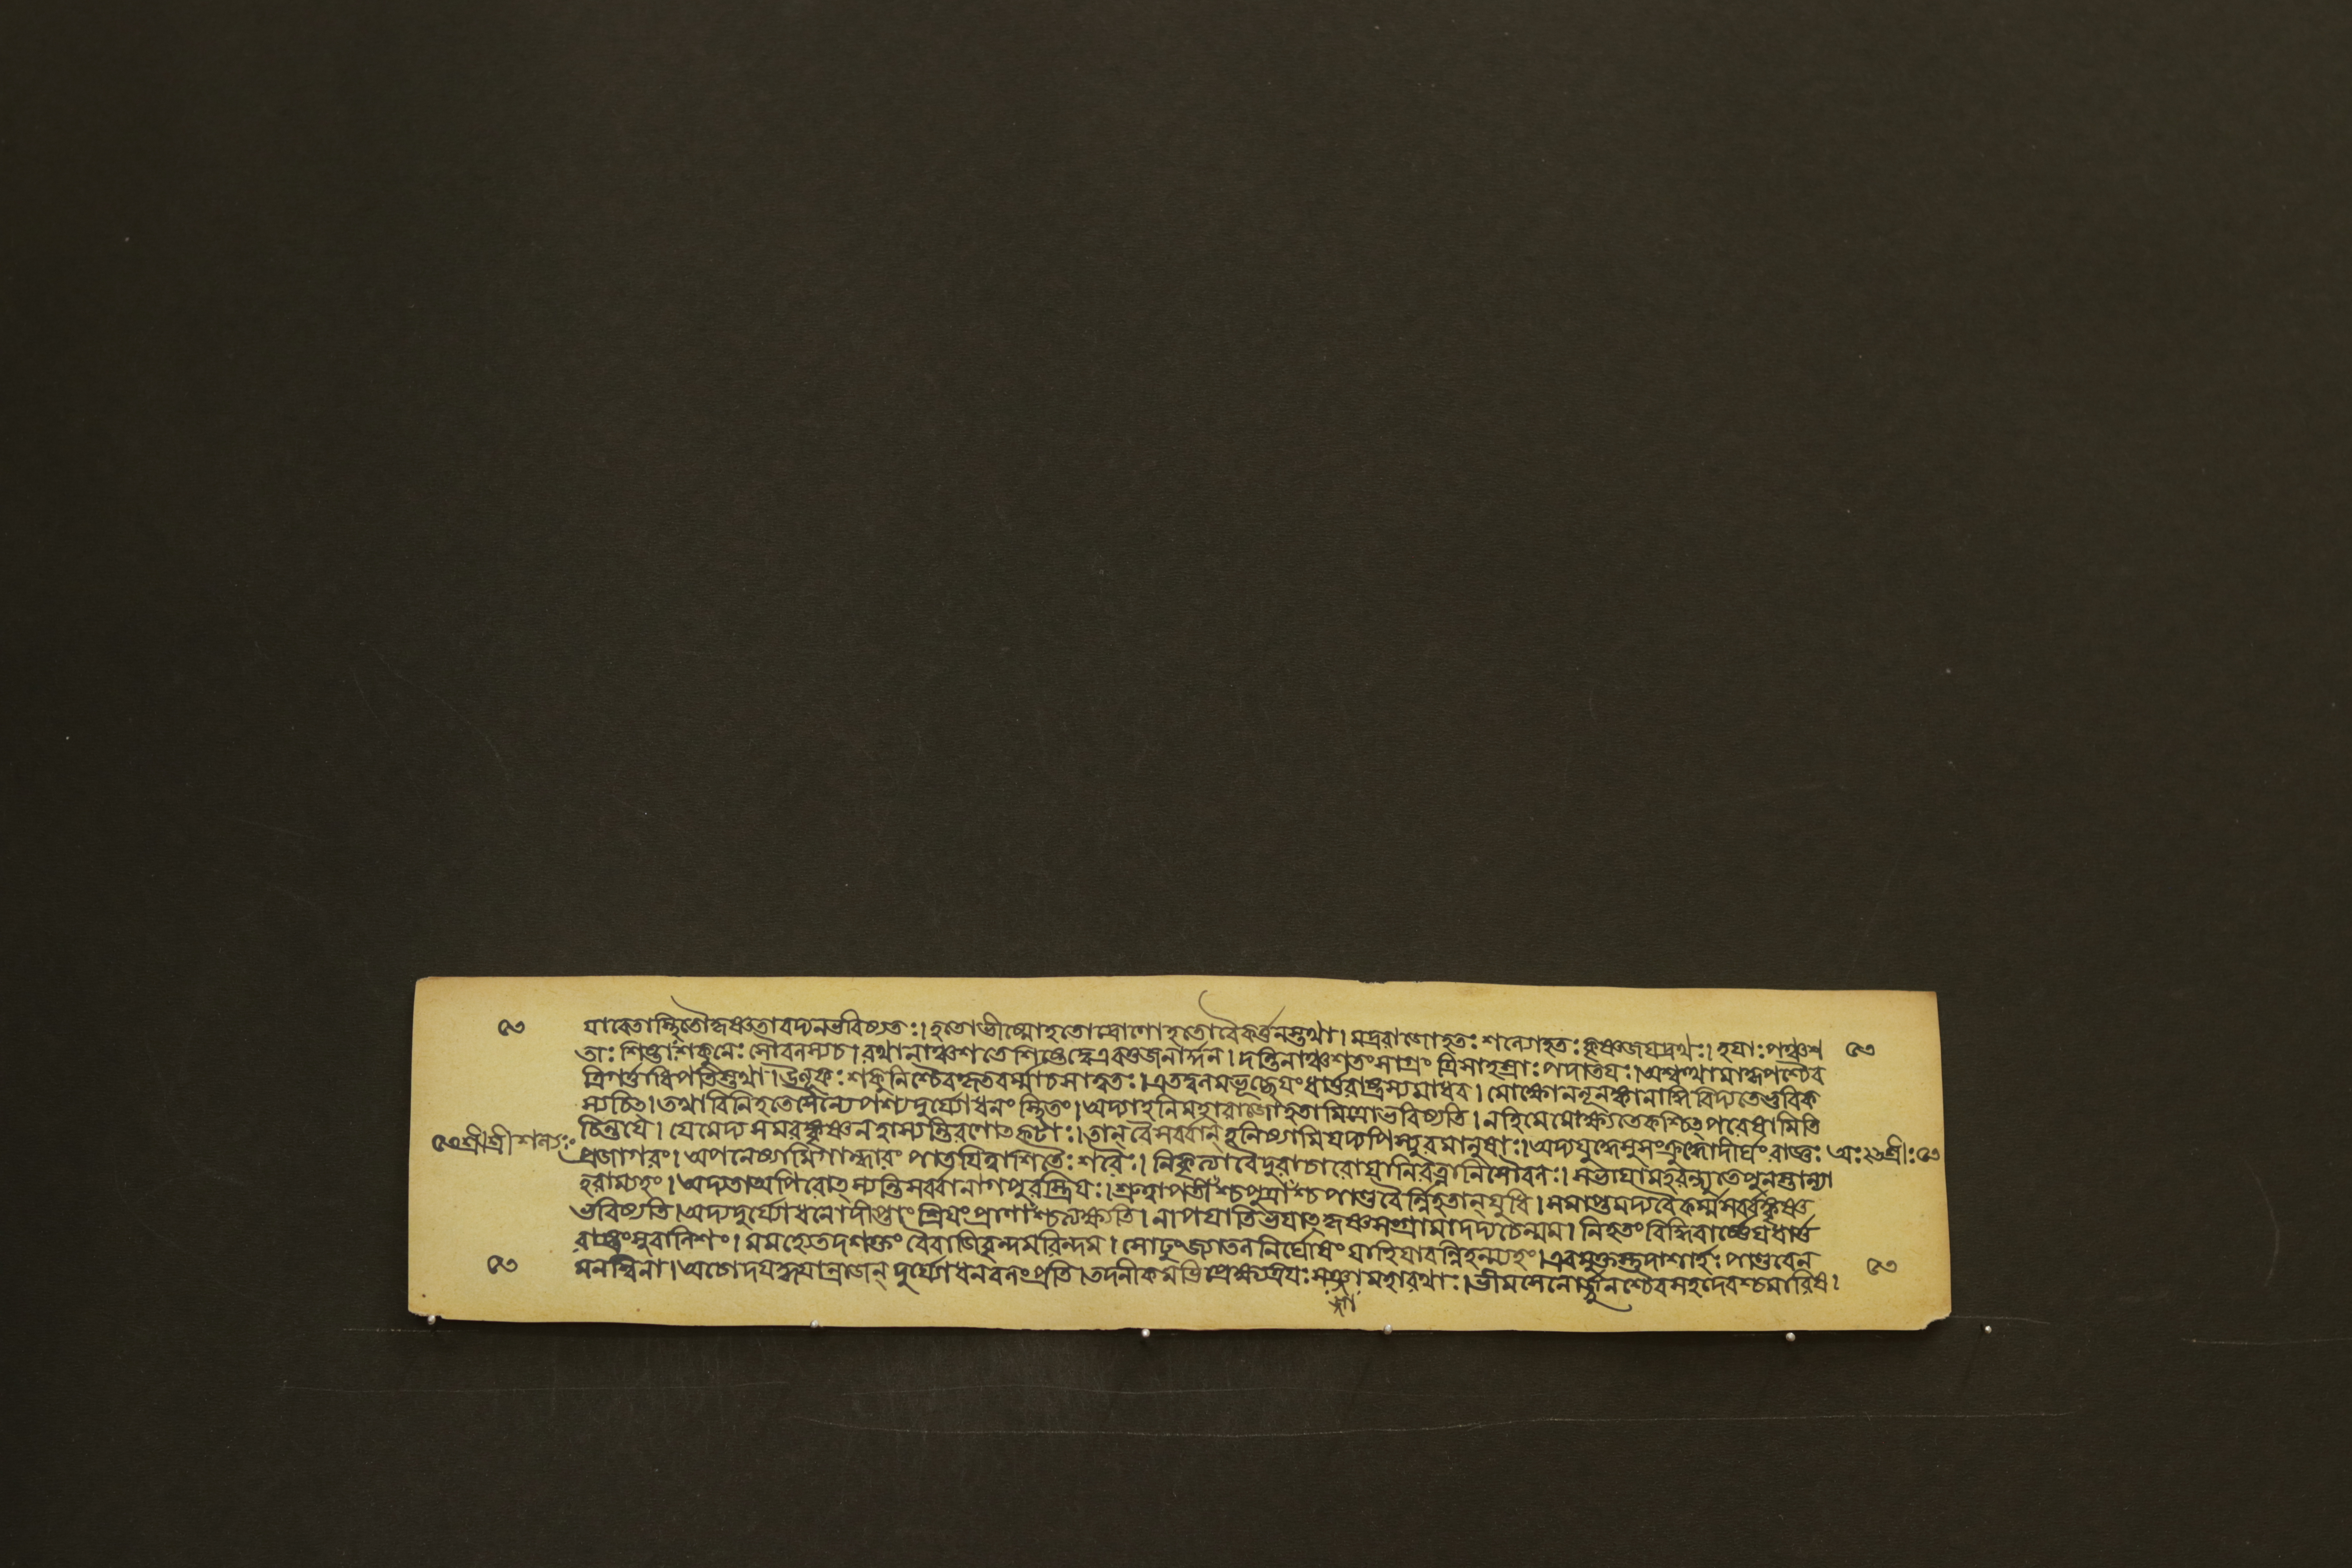 ৫৩ যাবেতাস্থিতৌকৃষ্ণতাবদ্যনভবিষ্যতঃ। হতোভীষ্মোহতোদ্রোণোহতোবৈকর্ত্তনস্তথা। মদ্ররাজোহতঃ শল্যোহতঃ কৃষ্ণজযদ্রথঃ। হযাঃ পঞ্চশ ৫৩
তাঃ শিষ্টাঃ শকুনেঃ সৌবলস্যচ। রথানাঞ্চশতেশিষ্টেদ্বেএবতুজনার্দ্দন। দন্তিনাঞ্চশতংসাগ্রং ত্রিসাহস্রাঃ পদাতযঃ। অশ্বত্থামাকৃপশ্চৈব
ত্রিগর্ত্তাধিপতিস্তথা। উলূকঃ শকুনিশ্চৈবকৃতবর্ম্মাচসাত্বতঃ। এতদ্বলমভূচ্ছেষংধার্ত্তরাষ্ট্রস্যমাধব। মোক্ষোনলূনঙ্কালাদ্ধিবিদ্যতেভুবিক
স্যচিত। তথাবিনিহতেসৈন্যেপশ্যদুর্য্যোধনং স্থিতং। অদ্যাহনিমহারাজোহতামিত্রোভবিষ্যতি। নহিমেমোক্ষ্যতেকশ্চিত্পরেষামিতি
চিন্তযে। যেমেদ্য সমরঙ্কৃষ্ণনহাস্যন্তিরণোতক্টাঃ। তান্‌বৈসর্ব্বান্‌হনিষ্যামিযদ্যপিস্যুরমানুষাঃ। অদ্যযুদ্ধেসুসংক্রুদ্ধোদীর্ঘংরাজ্ঞঃ
৫৩শ্রীশ্রীশল্যঃ প্রজাগরং। অপনেষ্যামিগান্ধারং পাতযিত্বাশিতৈঃ শরৈঃ। নিকৃত্যাবৈদুরাচারোযানিরত্নানিসৌবলঃ। সভাযামহরদ্দ্যূতেপুনস্তান্যা অঃ২৬শ্রীঃ৫৩
হরাম্যহং। অদ্যতাঅপিরোত্স্যন্তিসর্ব্বানাগপুরস্ত্রিযঃ। শ্রুত্বাপতীঁশ্চপুত্রাঁশ্চপাণ্ডবৈর্ন্নিহতান্‌যুধি। সমাপ্তমদ্যবৈকর্ম্মসর্ব্বঙ্কৃষ্ণ
ভবিষ্যতি। অদ্যদুর্য্যোধনোদীপ্তাং শ্রিযংপ্রাণাঁশ্চত্যক্ষ্যতি। নাপযাতিভযাত্কৃষ্ণসংগ্রামাদদ্যচেন্মম। নিহতংবিদ্ধিবার্ষ্ণেযধার্ত্ত
রাষ্ট্রংসুবালিশং। মমহ্যেতদশক্তং বৈবাজিবৃন্দমরিন্দম। সোঢুংজ্যাতলনির্ঘোষং যাহিযাবন্নিহন্ম্যহং। এবমুক্তস্তুদাশার্হঃ পাণ্ডবেন
৫৩ মনস্বিনা। অচোদযদ্ধযান্রাজন্‌ দুর্য্যোধনবলংপ্রতি। তদনীকমভিপ্রেক্ষ্যত্রযঃ সজ্জামহারথাঃ। ভীমসেনোর্জ্জুনশ্চৈবসহদেবশ্চমারিষ। ৫৩